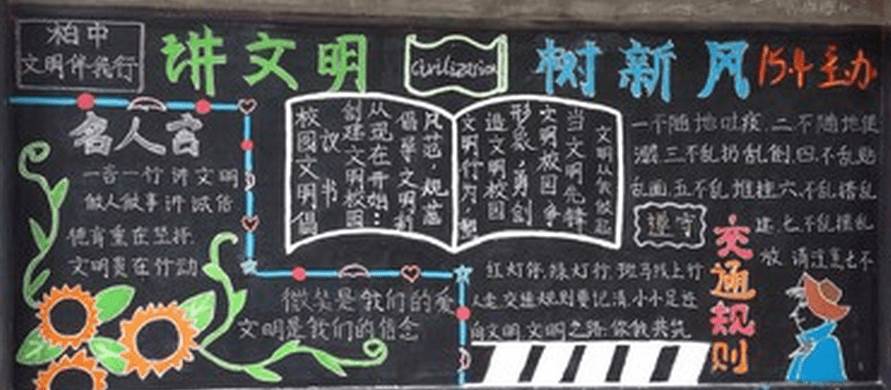 柏中
文明伴我行
讲文明
Civilization
树新风
15.4主办
名人言
一言一行讲文明
做人做事讲诚信
德育重在坚持
文明贵在行动
微笑是我们的爱
文明是我们的信念
校园文明倡
议书
创建文明校园
从现在开始:
倡举文明新
风范,规范
文明行为,塑
造文明校园
形象,勇创
文明校园,争
当文明先锋
文明从我做起
一不随地吐痰.二不随地便
溺.三不乱扔乱倒.四.不乱贴
乱画.五不乱堆挂六.不乱搭乱
建.七.不乱摆乱
放 请注意七不
遵守
交通规则
红灯停.绿灯行.斑马线上行
人走.交通规则要记清.小小足迹
向文明.文明之路.你我共筑